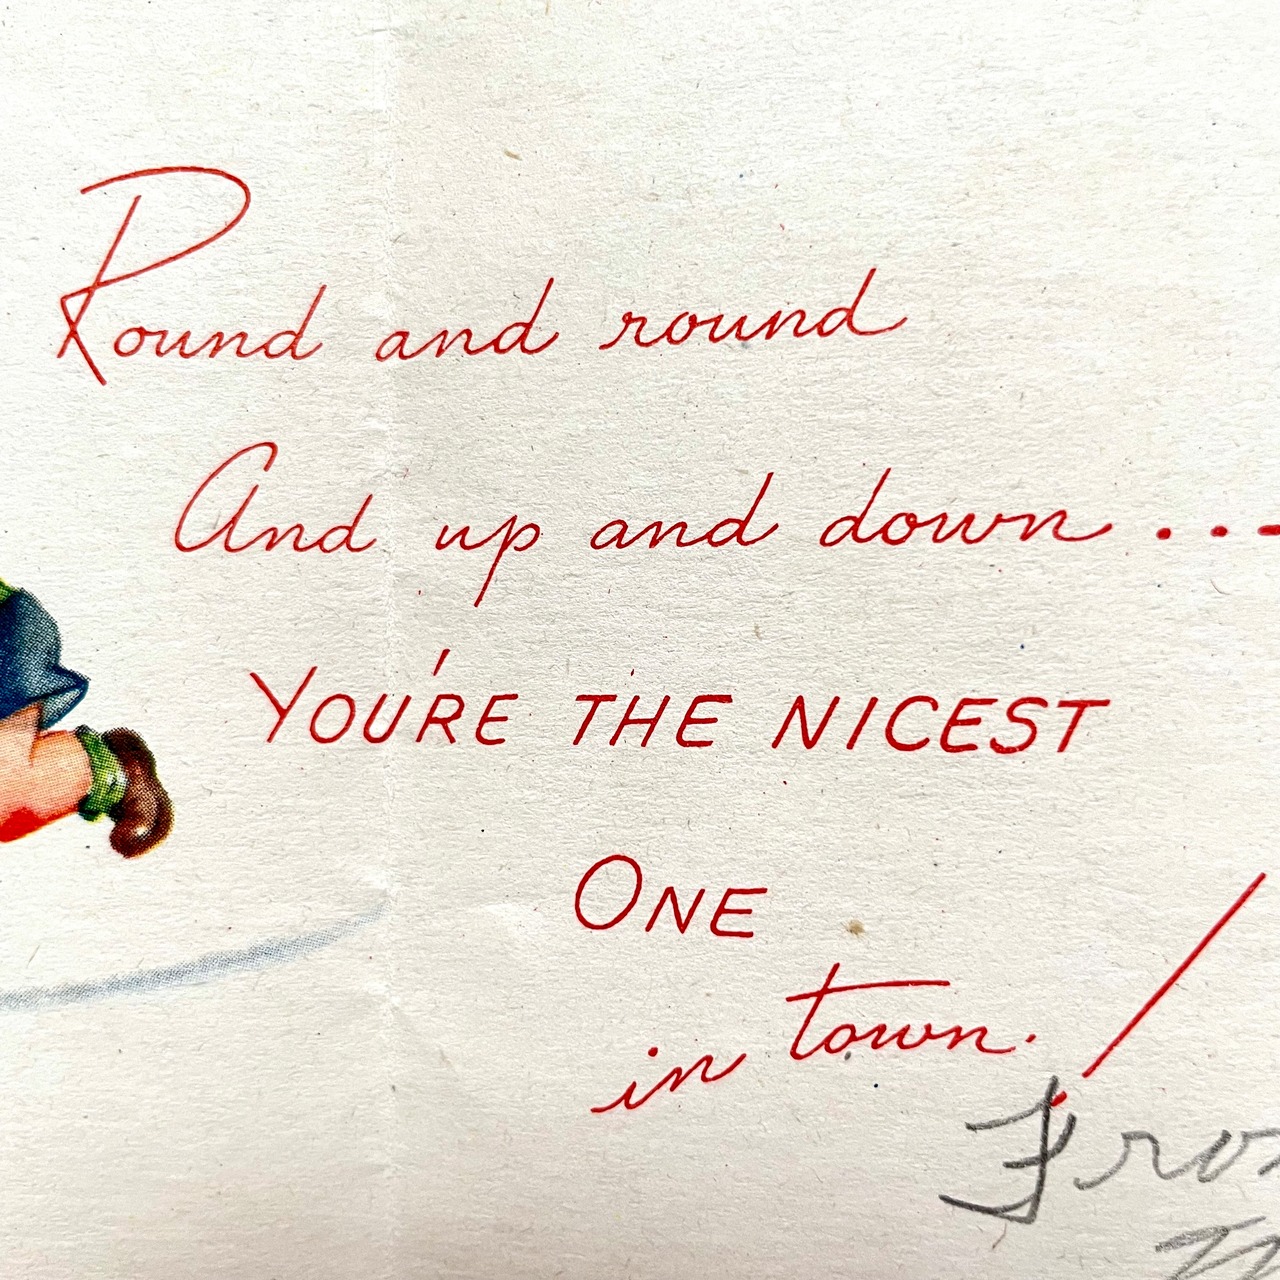 Round and round
And up and down . . .
YOU'RE THE NICEST
ONE
in town.